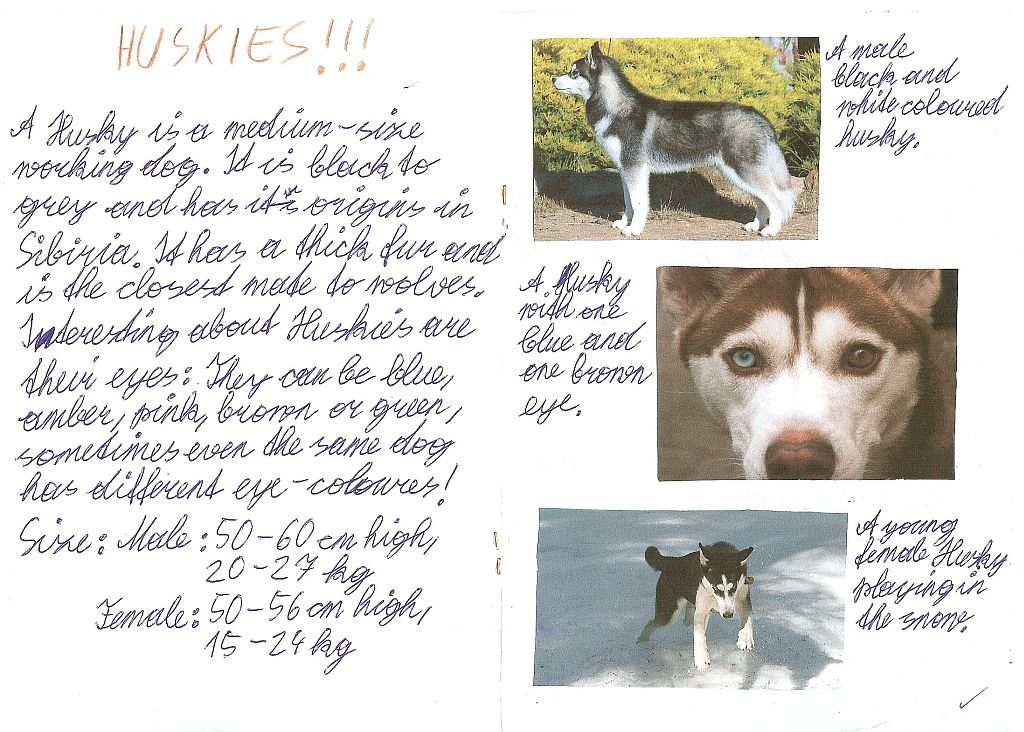 HUSKIES!!!
A Husky is a medium-size
working dog. It is black to
grey and has it's origins in
Sibiria. It has a thick fur and
is the closest mate to wolves.
Interesting about Huskies are
their eyes: They can be blue,
amber, pink, brown or green,
sometimes even the same dog
has different eye-coloures!
Size: Male: 50-60 cm high,
20-27 kg
Female: 50-56 cm high,
15-24 kg
A male
black and
white coloured
husky.
A Husky
with one
blue and
one brown
eye.
A young
female Husky
playing in
the snow.